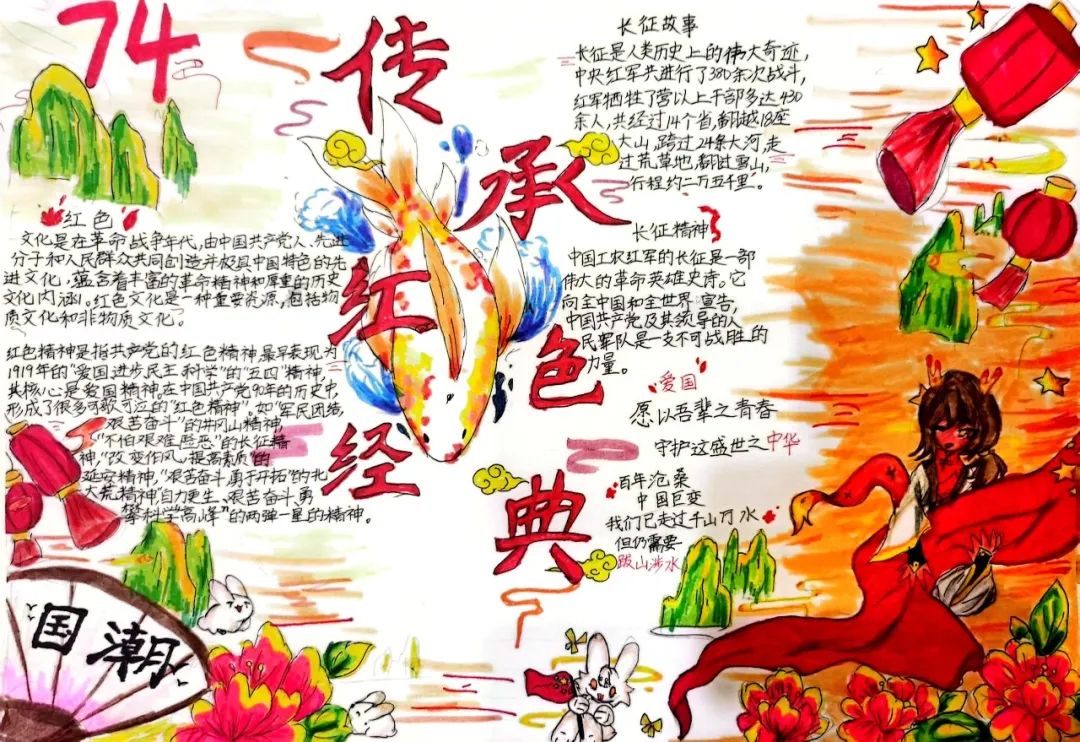 74
传承红色经典
红色
文化是在革命战争年代,由中国共产党人、先进
分子和人民群众共同创造并极具中国特色的先
进文化,蕴含着丰富的革命精神和厚重的历史
文化内涵。红色文化是一种重要资源,包括物
质文化和非物质文化。
红色精神是指共产党的红色精神,最早表现为
1919年的“爱国、进步、民主、科学”的“五四”精神,
其核心是爱国精神。在中国共产党90年的历史中,
形成了很多可歌可泣的“红色精神”。如“军民团结,
艰苦奋斗”的井冈山精神,
“不怕艰难险恶”的长征精
神,“改变作风,提高素质”的
延安精神,“艰苦奋斗勇于开拓”的北
大荒精神“自力更生、艰苦奋斗勇
攀科学高峰”的两弹一星的精神。
长征故事
长征是人类历史上的伟大奇迹,
中央红军共进行了380余次战斗,
红军牺牲了营以上干部多达430
余人,共经过14个省,翻越18座
大山,跨过24条大河,走
过荒草地,翻过雪山,
行程约二万五千里。
长征精神
中国工农红军的长征是一部
伟大的革命英雄史诗。它
向全中国和全世界宣告,
中国共产党及其领导的人
民军队是一支不可战胜的
力量。
爱国
愿以吾辈之青春
守护这盛世之中华
百年沧桑
中国巨变
我们已走过千山万水
但仍需要
跋山涉水
国潮